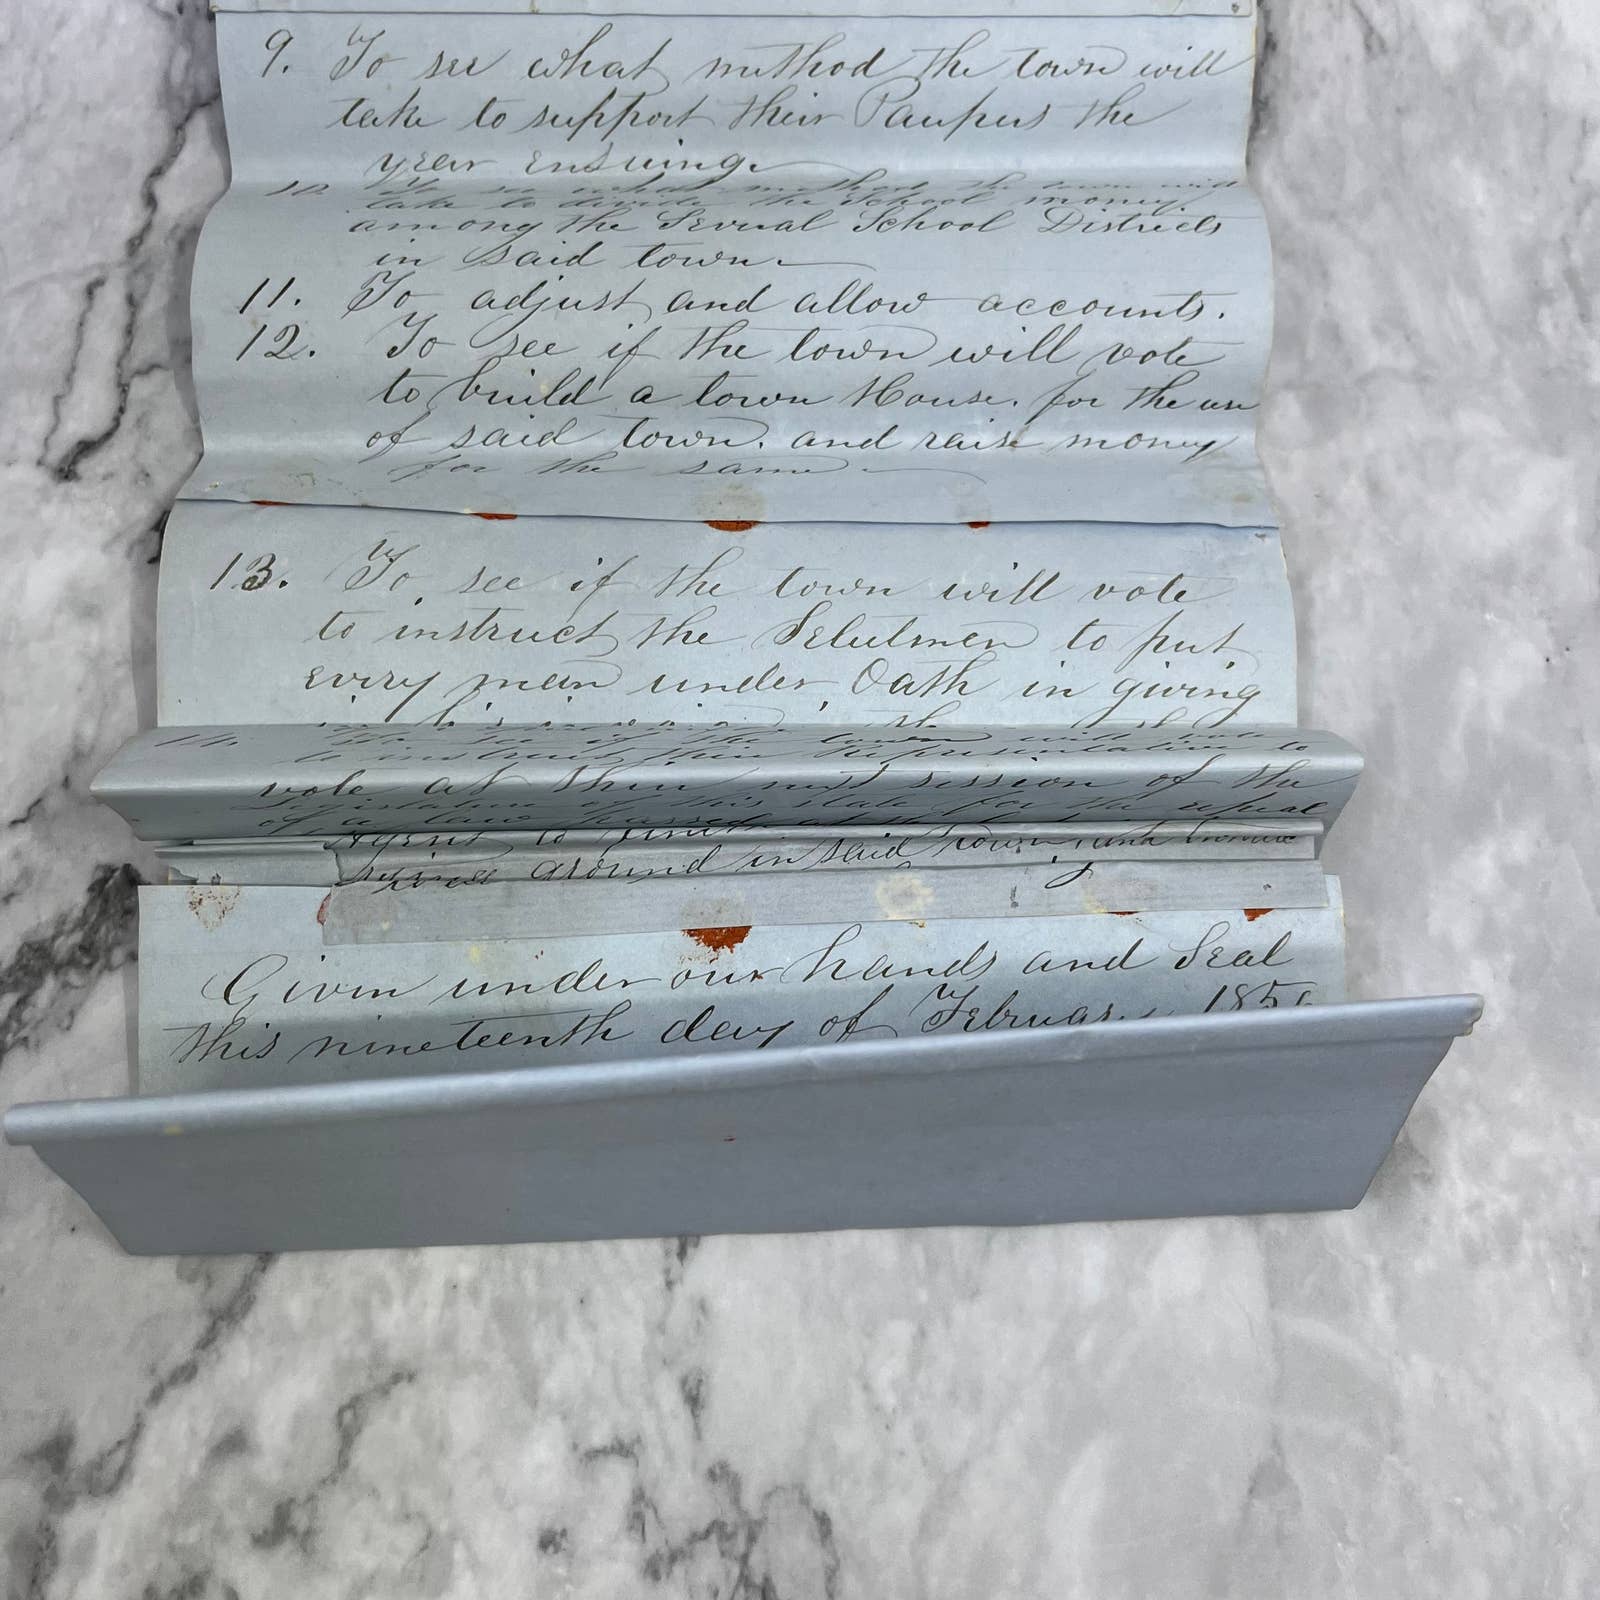 9. To see what method the town will
take to support their Paupers the
year ensuing.
10. To see what method the town will
take to divide the School money
among the Several School Districts
in said town.
11. To adjust and allow accounts.
12. To see if the town will vote
to build a town House. for the use
of said town. and raise money
for the same.
13. To see if the town will vote
to instruct the Selectmen to put
every man under Oath in giving
in his
14. To see if the town will vote
to instruct their Representative to
vote at their next session of the
Legislature of this state for the repeal
of a law passed at
Agent to
around in said town, and
Given under our hands and Seal
this nineteenth day of February